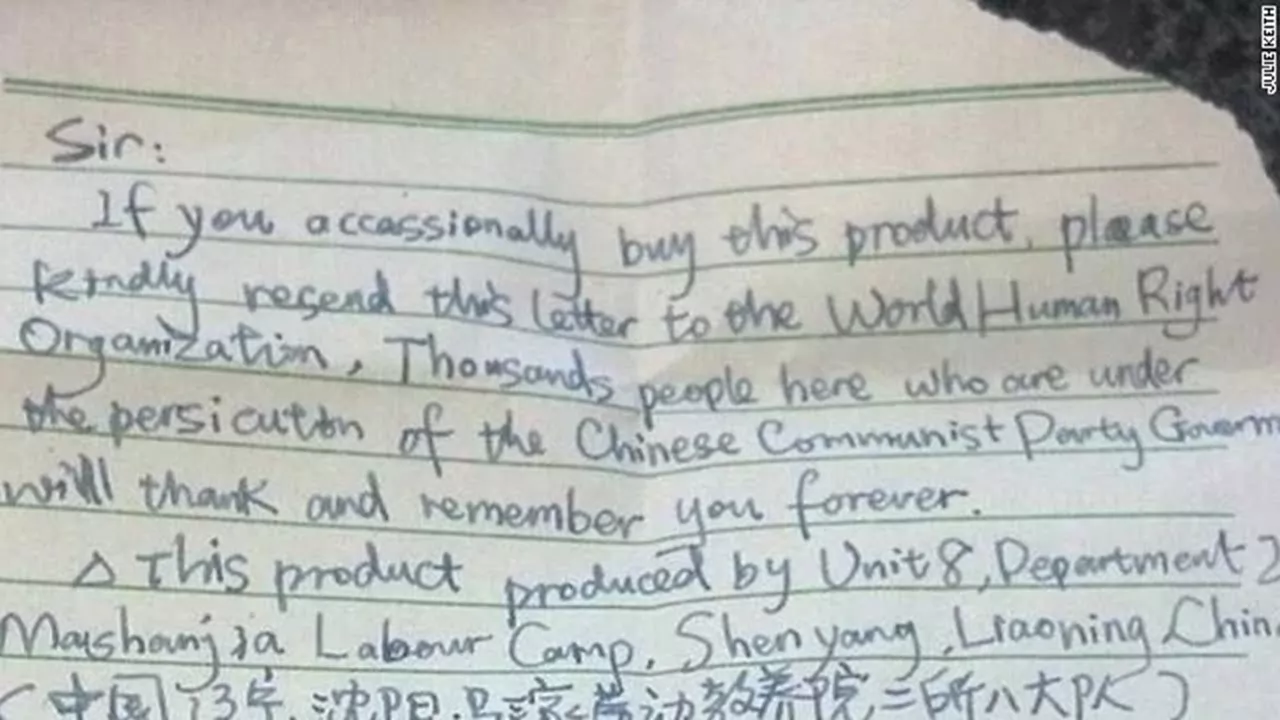 JULIE KEITH
Sir:
If you accassionally buy this product, please
kindly resend this letter to the World Human Right
Organization, Thousands people here who are under
the persicution of the Chinese Communist Party Governm
will thank and remember you forever.
△ This product produced by Unit 8, Department 2
Mashanjia Labour Camp, Shenyang, Liaoning, Chin
(中国 辽宁, 沈阳, 马三家劳动教养院二所八大队)